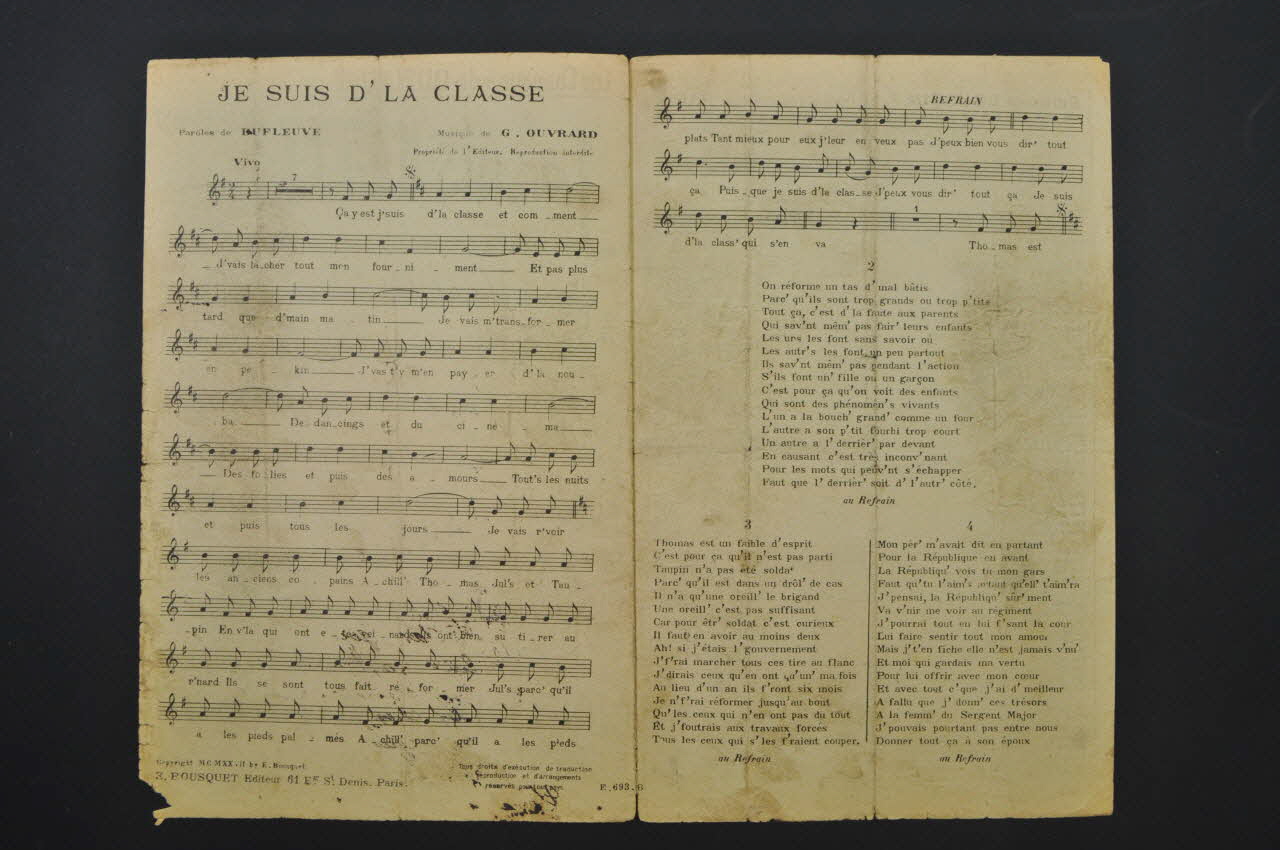 JE SUIS D' LA CLASSE
Paroles de DUFLEUVE
Musique de G. OUVRARD
Propriété de l'Editeur. Reproduction interdite
Vivo
7
Ça y est j'suis d'la classe et com _ ment
J'vais lâcher tout mon four _ ni _ ment Et pas plus
tard que d'main ma _ tin Je vais m'trans_for _ mer
en pe _ kin J'vas t'y m'en pay _ er d'la nou _
ba De dan_cings et du ci _ né _ ma
Des fo_lies et puis des a _ mours Tout's les nuits
et puis tous les jours Je vais r'voir
les an_ciens co _ pains A _ chill' Tho _ mas Jul's et Tau _
_ pin En v'la qui ont ont bien su ti _ rer au
r'nard Ils se sont tous fait ré _ for _ mer Jul's parc' qu'il
a les pieds pal _ més A _ chill' parc' qu'il a les pieds
Copyright MCMXXVII by E. Bousquet
E. BOUSQUET Editeur 61 Fg St Denis. Paris.
Tous droits d'exécution de traduction
reproduction et d'arrangements
réservés pour tout pays
E. 693. B
REFRAIN
plats Tant mieux pour eux j'leur en veux pas J'peux bien vous dir' tout
ça Puis _ que je suis d'la clas _ se J'peux vous dir' tout ça Je suis
1
d'la class' qui s'en va Tho _ mas est
2
On réforme un tas d'mal bâtis
Parc' qu'ils sont trop grands ou trop p'tits
Tout ça, c'est d'la faute aux parents
Qui sav'nt mêm' pas fair' leurs enfants
Les uns les font sans savoir où
Les autr's les font un peu partout
Ils sav'nt mêm' pas pendant l'action
S'ils font un' fille ou un garçon
C'est pour ça qu'on voit des enfants
Qui sont des phénomèn's vivants
L'un a la bouch' grand' comme un four
L'autre a son p'tit fourbi trop court
Un autre a l'derrièr' par devant
En causant c'est très inconv'nant
Pour les mots qui peuv'nt s'échapper
Faut que l'derrièr' soit d'l'autr' côté.
au Refrain
3
Thomas est un faible d'esprit
C'est pour ça qu'il n'est pas parti
Taupin n'a pas été soldat
Parc' qu'il est dans un drôl' de cas
Il n'a qu'une oreill' le brigand
Une oreill' c'est pas suffisant
Car pour êtr' soldat c'est curieux
Il faut en avoir au moins deux
Ah! si j'étais l'gouvernement
J'f'rai marcher tous ces tire au flanc
J'dirais ceux qu'en ont qu'un' ma fois
Au lieu d'un an ils f'ront six mois
Je n'f'rai réformer jusqu'au bout
Qu'les ceux qui n'en ont pas du tout
Et j'foutrais aux travaux forcés
Tous les ceux qui s'les f'raient couper.
au Refrain
4
Mon pèr' m'avait dit en partant
Pour la République en avant
La Républiqu' vois tu mon gars
Faut qu'tu l'aim's autant qu'ell' t'aim'ra
J'pensai, la Républiq' sûr'ment
Va v'nir me voir au régiment
J'pourrai tout en lui f'sant la cour
Lui faire sentir tout mon amour
Mais j't'en fiche elle n'est jamais v'nu'
Et moi qui gardais ma vertu
Pour lui offrir avec mon cœur
Et avec tout c'que j'ai d'meilleur
A fallu que j'donn' ces trésors
A la femm' du Sergent Major
J'pouvais pourtant pas entre nous
Donner tout ça à son époux
au Refrain